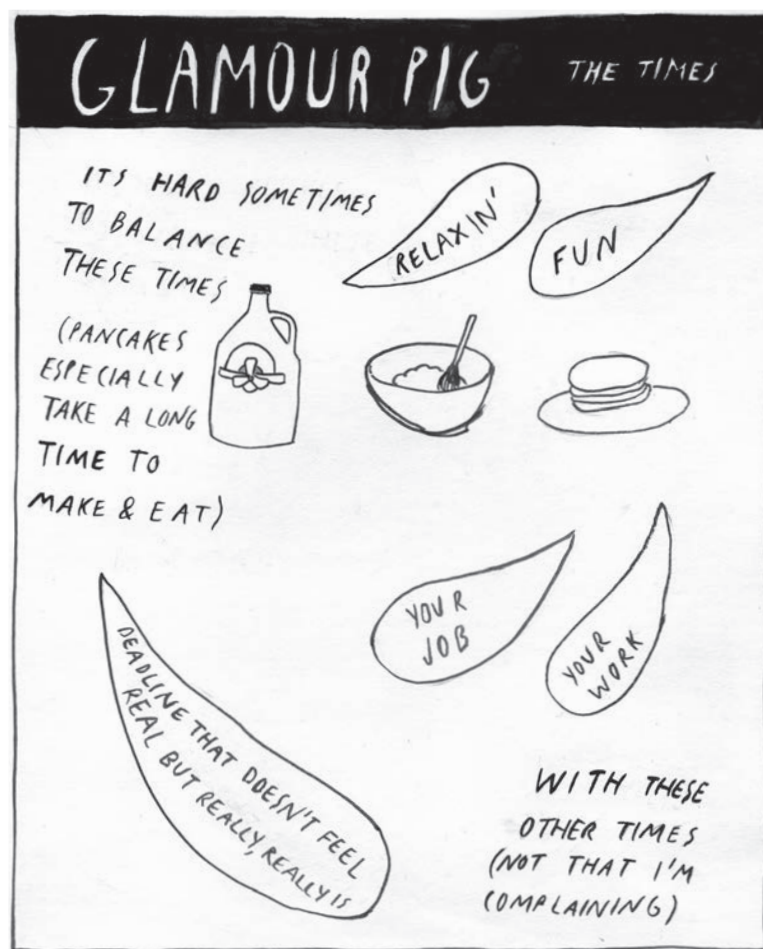 GLAMOUR PIG THE TIMES
ITS HARD SOMETIMES
TO BALANCE
THESE TIMES
RELAXIN'
FUN
(PANCAKES
ESPECIALLY
TAKE A LONG
TIME TO
MAKE & EAT)
YOUR
JOB
YOUR
WORK
DEADLINE THAT DOESN'T FEEL
REAL BUT REALLY, REALLY IS
WITH THESE
OTHER TIMES
(NOT THAT I'M
COMPLAINING)